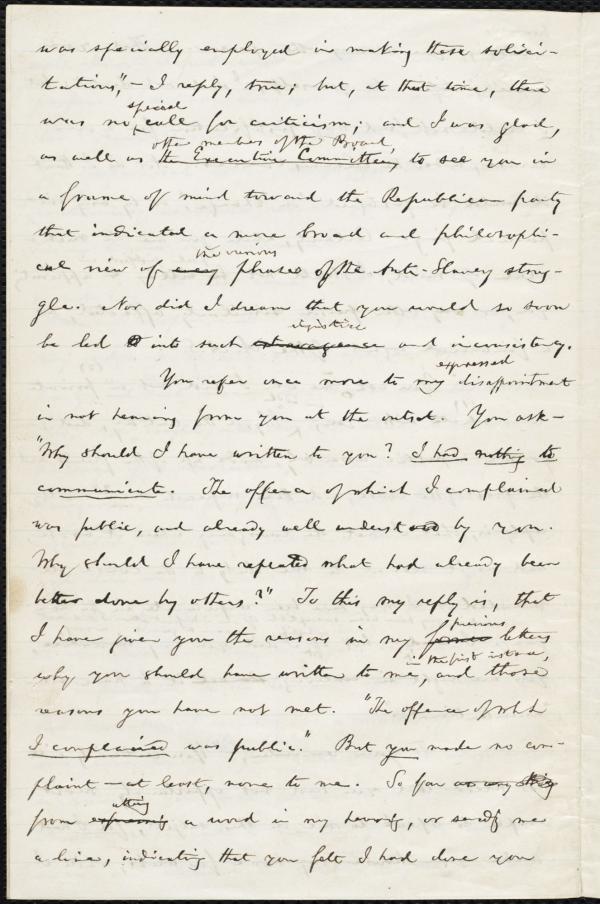 was specially employed in making these solici-
tations," — I reply, true; but, at that time, there
special
was no call for criticism; and I was glad,
other members of the Board,
as well as the Executive Committee, to see you in
a frame of mind toward the Republican party
that indicated a more broad and philosophi-
the various
cal view of every phases of the Anti-Slavery strug-
gle. Nor did I dream that you would so soon
injustice
be led into such extravagance and inconsistency.
expressed
You refer once more to my disappointment
in not hearing from you at the outset. You ask —
"Why should I have written to you? I had nothing to
communicate. The offence of which I complained
was public, and already well understood by you.
Why should I have repeated what had already been
better done by others?" To this my reply is, that
previous
I have given you the reasons in my former letters
in the first instance,
why you should have written to me, and those
reasons you have not met. "The offence of which
I complained was public." But you made no com-
plaint — at least, none to me. So far as any thing
uttering
from expressing a word in my hearing, or sending me
a line, indicating that you felt I had done you